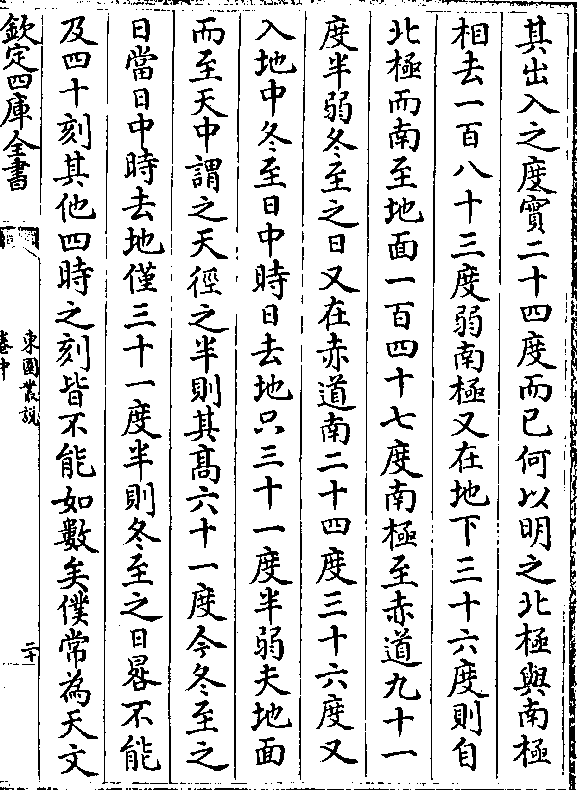 其出入之度實二十四度而已何以明之北極與南極
相去一百八十三度弱南極又在地下三十六度則自
北極而南至地面一百四十七度南極至赤道九十一
度半弱冬至之日又在赤道南二十四度三十六度又
入地中冬至日中時日去地只三十一度半弱夫地面
而至天中謂之天徑之半則其髙六十一度今冬至之
日當日中時去地僅三十一度半則冬至之日晷不能
及四十刻其他四時之刻皆不能如數矣僕常為天文
欽定四庫全書
東園叢說
卷中
二十